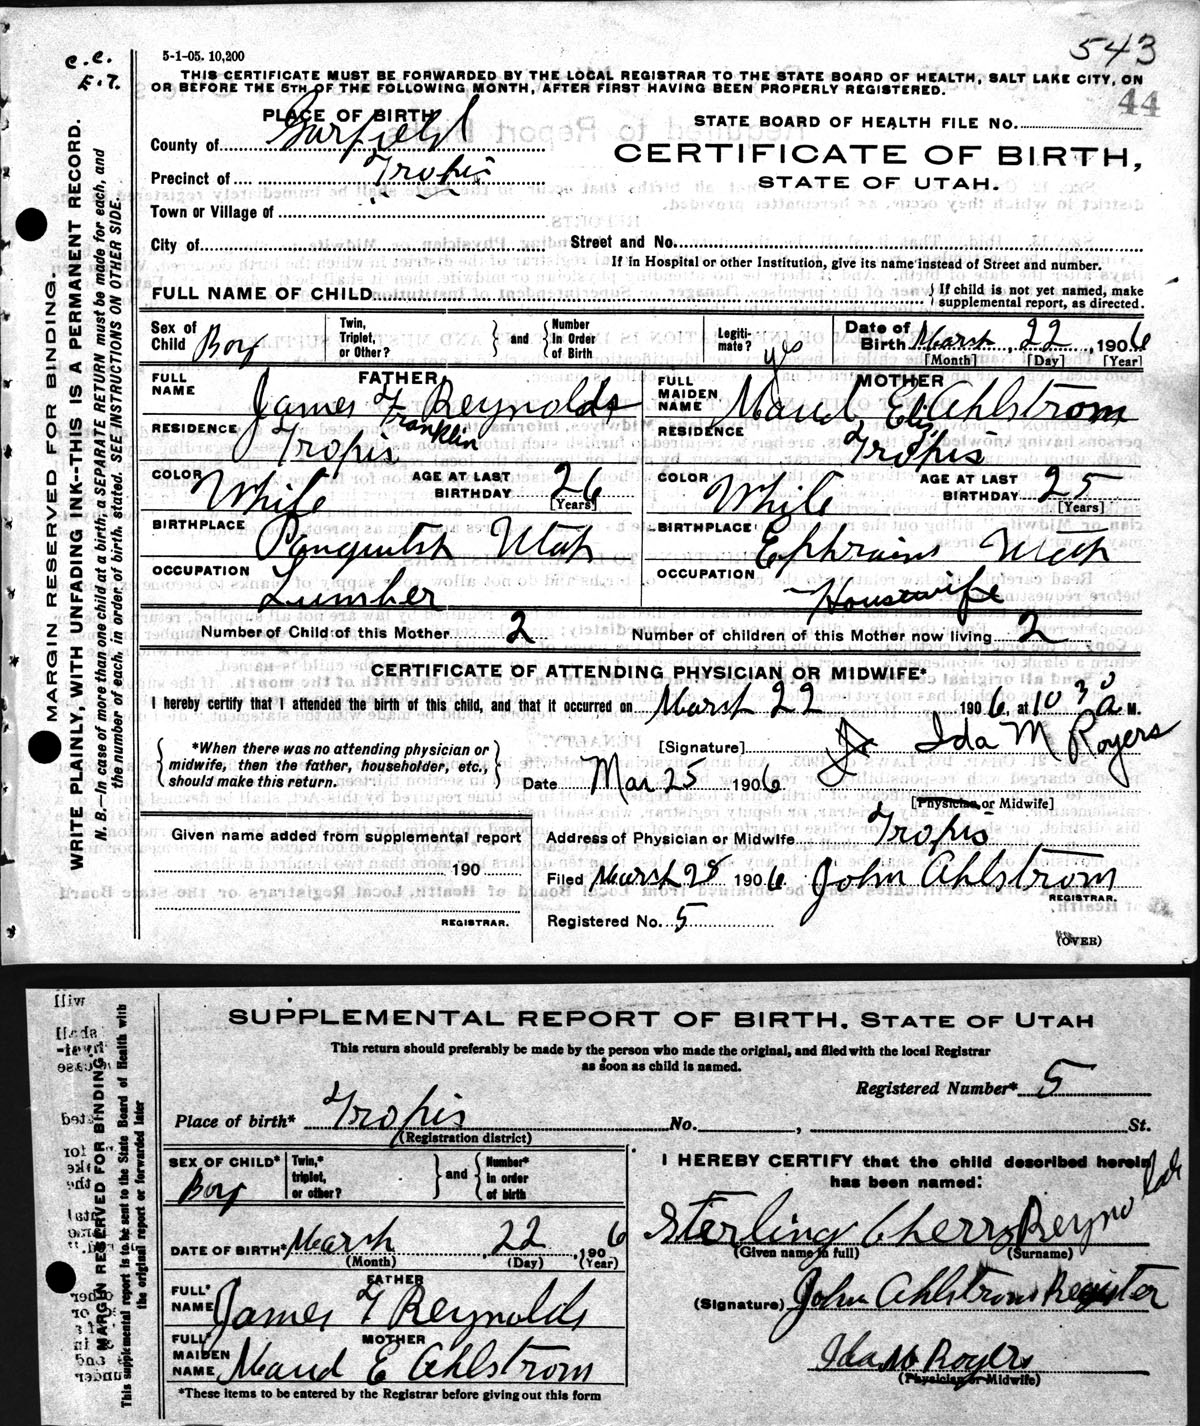 543
C.C.
E.T.
5-1-05. 10,200
THIS CERTIFICATE MUST BE FORWARDED BY THE LOCAL REGISTRAR TO THE STATE BOARD OF HEALTH, SALT LAKE CITY, ON
OR BEFORE THE 5TH OF THE FOLLOWING MONTH, AFTER FIRST HAVING BEEN PROPERLY REGISTERED.
44
MARGIN RESERVED FOR BINDING.
WRITE PLAINLY, WITH UNFADING INK--THIS IS A PERMANENT RECORD.
N. B.—In case of more than one child at a birth, a SEPARATE RETURN must be made for each, and
the number of each, in order of birth, stated. SEE INSTRUCTIONS ON OTHER SIDE.
PLACE OF BIRTH
STATE BOARD OF HEALTH FILE No.
County of Garfield
CERTIFICATE OF BIRTH,
Precinct of Tropic
STATE OF UTAH.
Town or Village of
City of Street and No.
If in Hospital or other Institution, give its name instead of Street and number.
FULL NAME OF CHILD } If child is not yet named, make
supplemental report, as directed.
Sex of Child Boy Twin, Triplet, or Other? } and { Number in Order of Birth Legiti-mate? yes Date of Birth March 22, 1906
[Month] [Day] [Year]
FATHER MOTHER
FULL NAME James F Reynolds FULL MAIDEN NAME Maud E Ahlstrom
Franklin
RESIDENCE Tropic RESIDENCE Tropic
COLOR White AGE AT LAST BIRTHDAY 26 [Years] COLOR White AGE AT LAST BIRTHDAY 25 [Years]
BIRTHPLACE Panguitch Utah BIRTHPLACE Ephraim Utah
OCCUPATION Lumber OCCUPATION Housewife
Number of Child of this Mother 2 Number of children of this Mother now living 2
CERTIFICATE OF ATTENDING PHYSICIAN OR MIDWIFE*
I hereby certify that I attended the birth of this child, and that it occurred on March 22 1906, at 10 30 a M.
{ *When there was no attending physician or midwife, then the father, householder, etc., should make this return. }
[Signature] Ida M Rogers
Date Mar 25 1906
[Physician or Midwife]
Given name added from supplemental report
190
REGISTRAR.
Address of Physician or Midwife Tropic
Filed March 28 1906 John Ahlstrom
REGISTRAR.
Registered No. 5
(OVER)
MARGIN RESERVED FOR BINDING
This supplemental report is to be sent to the State Board of Health with
the original report or forwarded later
SUPPLEMENTAL REPORT OF BIRTH, STATE OF UTAH
This return should preferably be made by the person who made the original, and filed with the local Registrar
as soon as child is named.
Registered Number* 5
Place of birth* Tropic No. , St.
(Registration district)
SEX OF CHILD* Boy Twin,* triplet, or other? } and { Number* in order of birth
I HEREBY CERTIFY that the child described herein
has been named:
Sterling Cherry Reynolds
(Given name in full) (Surname)
DATE OF BIRTH* March 22, 1906
(Month) (Day) (Year)
FATHER
FULL* NAME James F Reynolds
(Signature) John Ahlstrom Register
MOTHER
FULL* MAIDEN NAME Maud E Ahlstrom
Ida M Rogers
(Physician or Midwife)
*These items to be entered by the Registrar before giving out this form